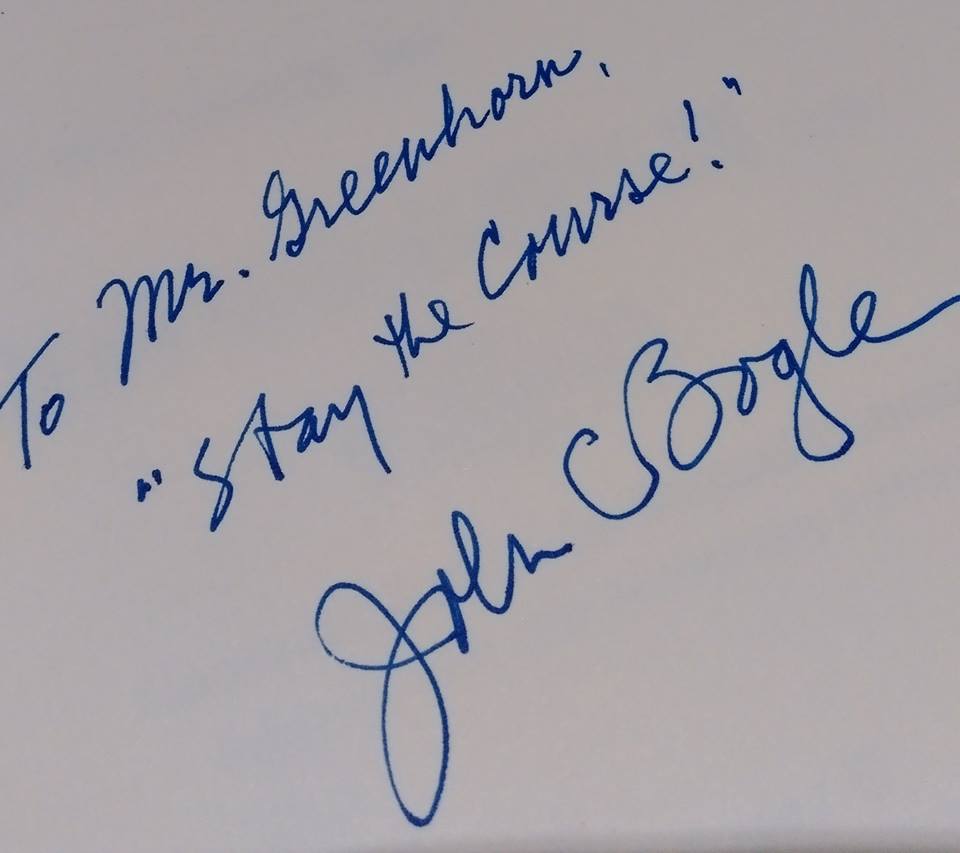 To Mr. Greenhorn,
"Stay the Course!"
John C Bogle